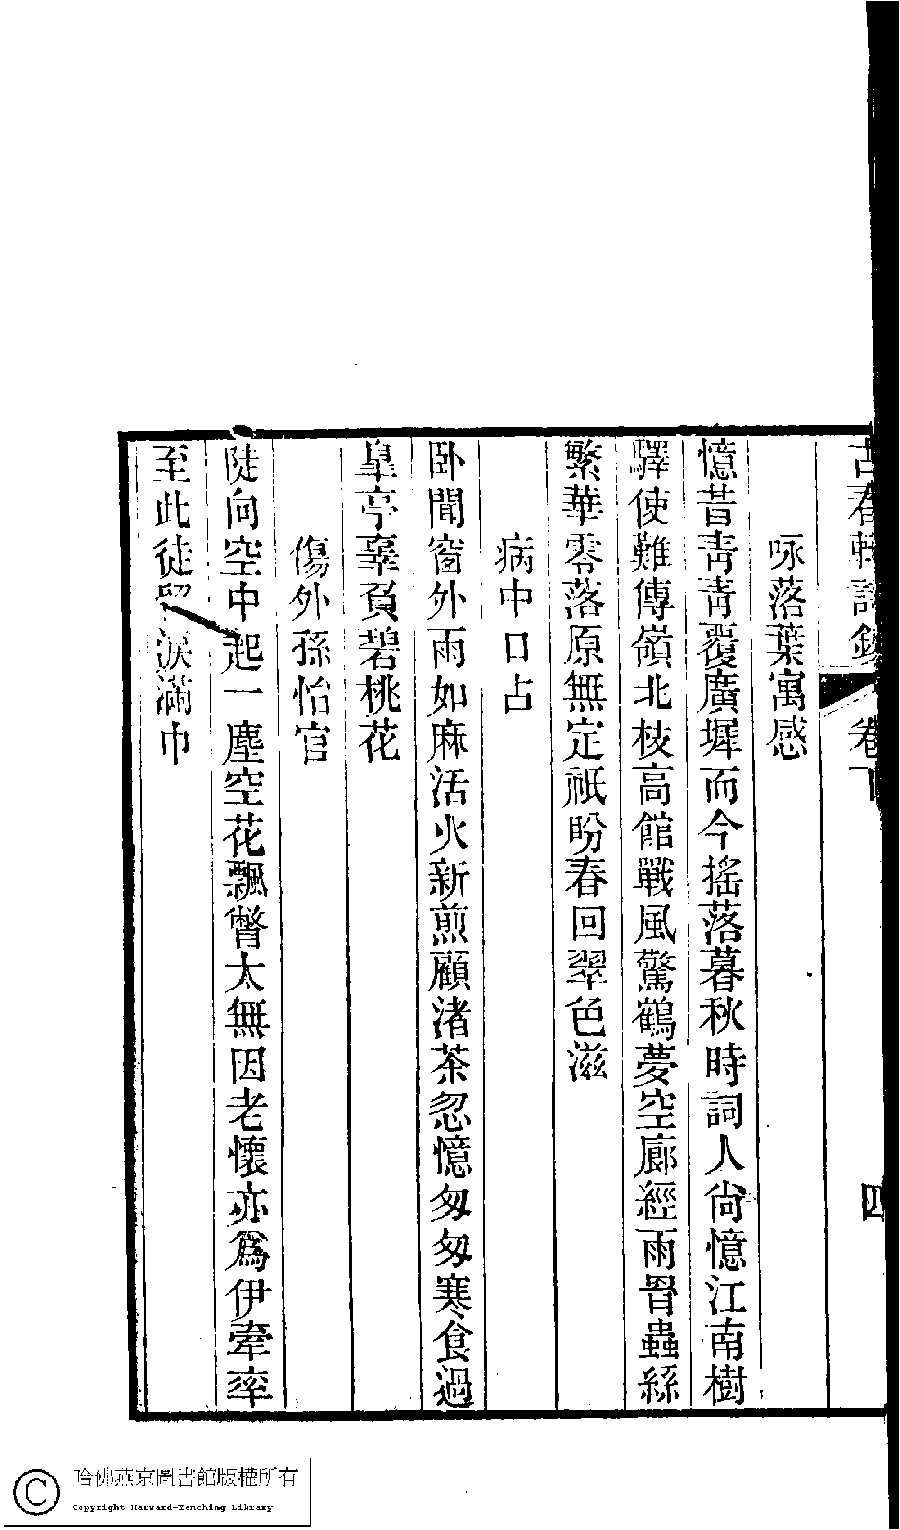 古春軒詩鈔 卷下 四
咏落葉寓感
憶昔靑靑覆廣墀而今搖落暮秋時詞人尙憶江南樹
驛使難傳嶺北枝高館戰風驚鶴夢空廊經雨罥蟲絲
繁華零落原無定祇盼春回翠色滋
病中口占
卧聞窗外雨如麻活火新煎顧渚茶忽憶匆匆寒食過
皐亭辜負碧桃花
傷外孫怡官
陡向空中起一塵空花飄瞥太無因老懷亦爲伊牽率
至此徒畱淚滿巾
哈佛燕京圖書館版權所有
Copyright Harvard-Yenching Library